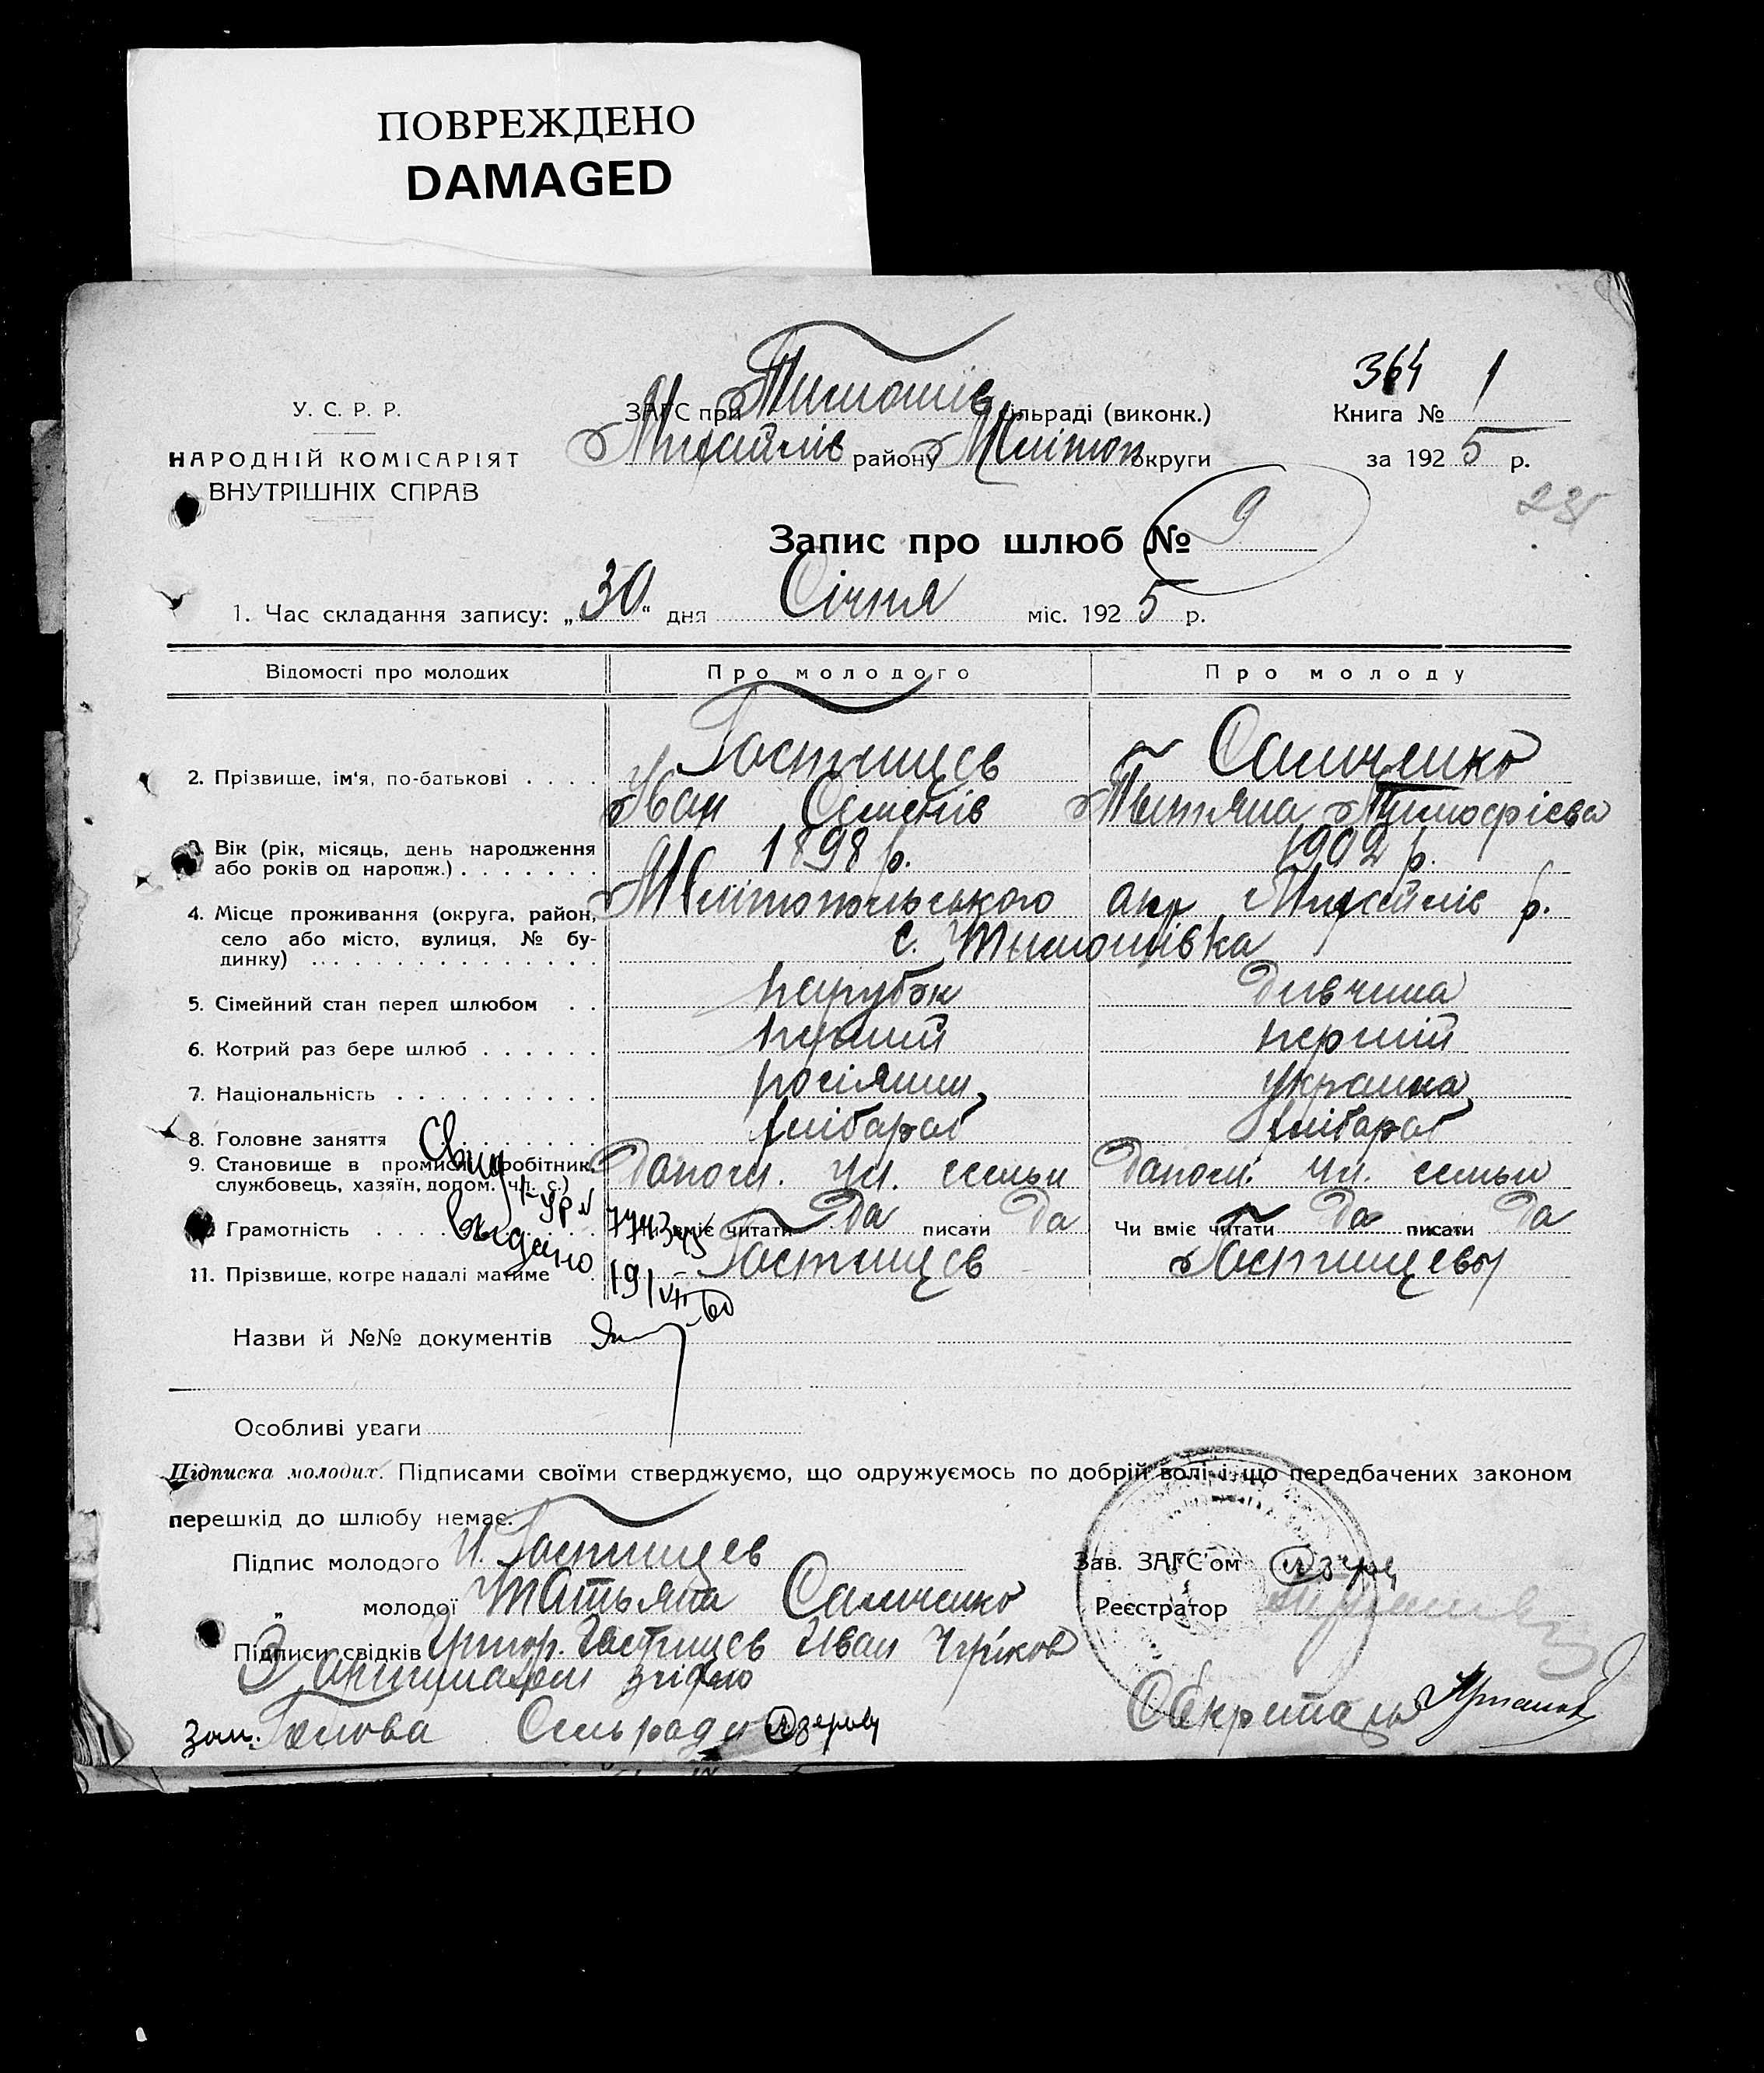 ПОВРЕЖДЕНО
DAMAGED
364
У. С. Р. Р.
НАРОДНІЙ КОМІСАРІЯТ
ВНУТРІШНІХ СПРАВ
ЗАГС при Тимошів сільраді (виконк.)
Михайлів району Мелітоп округи
Книга № 1
за 1925 р.
Запис про шлюб № 9
1. Час складання запису: „30“ дня Січня міс. 1925 р.
Відомості про молодих Про молодого Про молоду
2. Прізвище, ім'я, по-батькові . . . . Гостищев Самченко
Іван Семенів Татяна Тимофієва
3. Вік (рік, місяць, день народження 1898 р. 1902 р.
або років од народж.) . . . . . . .
4. Місце проживання (округа, район, Мелітопольського окр Михайлів р.
село або місто, вулиця, № бу- с. Тимошівка
динку) . . . . . . . . . . . . . .
5. Сімейний стан перед шлюбом . . парубок дивчина
6. Котрий раз бере шлюб . . . . . . перший перший
7. Національність . . . . . . . . . . росіянин украинка
8. Головне заняття . . . . . . . хлібороб хлібороб
9. Становище в промислі (робітник, допом. чл. семьи допом. чл. семьи
службовець, хазяїн, допом. чл. с.)
Грамотність . . . . Чи вміє читати да писати да Чи вміє читати да писати да
11. Прізвище, котре надалі матиме Гостищев Гостищева
Назви й №№ документів
Особливі уваги
Підписка молодих. Підписами своїми стверджуємо, що одружуємось по добрій волі і що передбачених законом
перешкід до шлюбу немає.
Підпис молодого И. Гостищев
„ молодої Татьяна Самченко
Підписи свідків Гостищев Иван
Зав. ЗАГС'ом
Реєстратор
З оригиналом згідно
Зам. Голова Сельради
Секретарь